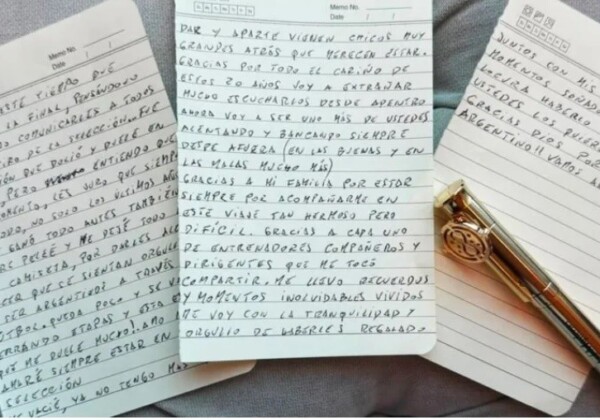 Memo No.
Date / /
ESTE TIEMPO QUE
LA FINAL, PENSÁNDOLO
COMUNICARLES A TODOS
DE LA SELECCIÓN. FUE
QUE DOLIÓ Y DUELE EN
PERO ENTIENDO QUE
LES JURO QUE SIEMPRE
NO SOLO LOS ÚLTIMOS AÑOS
GANÓ TODO, ANTES TAMBIÉN
PELEÉ Y ME DEJÉ TODO
CAMISETA, POR DARLES
QUE SE SIENTAN
SER ARGENTINOS A TRAVÉS
QUEDA POCO Y SE
ETAPAS Y ESTA
ME DUELE MUCHO!
SIEMPRE ESTAR EN
SELECCIÓN
VACIÉ, YA NO TENGO MÁS
Memo No.
Date / /
DAR Y APARTE VIENEN CHICOS MUY
GRANDES ATRÁS QUE MERECEN ESTAR.
GRACIAS POR TODO EL CARIÑO DE
ESTOS 20 AÑOS VOY A EXTRAÑAR
MUCHO ESCUCHARLOS DESDE ADENTRO
AHORA VOY A SER UNO MÁS DE USTEDES
ALENTANDO Y BANCANDO SIEMPRE
DESDE AFUERA (EN LAS BUENAS Y EN
LAS MALAS MUCHO MÁS)
GRACIAS A MI FAMILIA POR ESTAR
SIEMPRE POR ACOMPAÑARME EN
ESTE VIAJE TAN HERMOSO PERO
DIFÍCIL. GRACIAS A CADA UNO
DE ENTRENADORES COMPAÑEROS Y
DIRIGENTES QUE ME TOCÓ
COMPARTIR. ME LLEVO RECUERDOS
Y MOMENTOS INOLVIDABLES VIVIDOS
ME VOY CON LA TRANQUILIDAD Y
ORGULLO DE HABERLES REGALADO
JUNTOS CON MIS
MOMENTOS SOÑADOS
LOCURA HABERLO
USTEDES LOS QUIERO
GRACIAS DIOS POR
ARGENTINO!! VAMOS